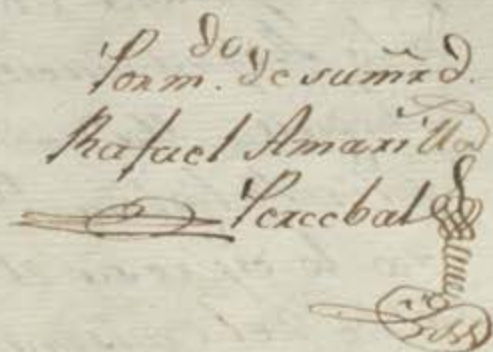 Por m.do de su mrd.
Rafael Amarilla
Perecebal